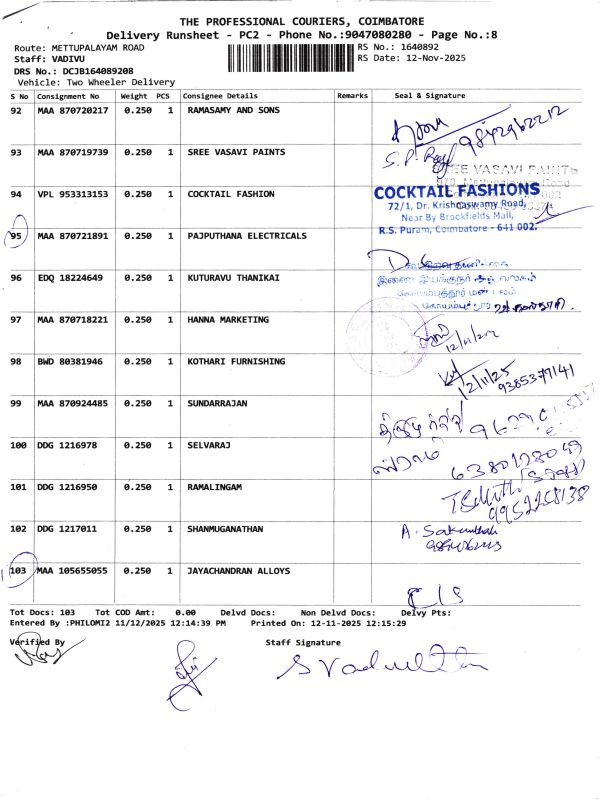 THE PROFESSIONAL COURIERS, COIMBATORE
Delivery Runsheet - PC2 - Phone No.:9047080280 - Page No.:8
Route: METTUPALAYAM ROAD
RS No.: 1640892
Staff: VADIVU
RS Date: 12-Nov-2025
DRS No.: DCJB164089208
Vehicle: Two Wheeler Delivery
S No Consignment No Weight PCS Consignee Details Remarks Seal & Signature
92 MAA 870720217 0.250 1 RAMASAMY AND SONS
9842962212
93 MAA 870719739 0.250 1 SREE VASAVI PAINTS
SREE VASAVI PAINTS
94 VPL 953313153 0.250 1 COCKTAIL FASHION
COCKTAIL FASHIONS
72/1, Dr. Krishnaswamy Road,
Near By Brookfields Mall,
R.S. Puram, Coimbatore - 641 002.
95 MAA 870721891 0.250 1 PAJPUTHANA ELECTRICALS
96 EDQ 18224649 0.250 1 KUTURAVU THANIKAI
97 MAA 870718221 0.250 1 HANNA MARKETING
12/11/25
98 BWD 80381946 0.250 1 KOTHARI FURNISHING
12/11/25
9385377141
99 MAA 870924485 0.250 1 SUNDARRAJAN
100 DDG 1216978 0.250 1 SELVARAJ
6380128049
101 DDG 1216950 0.250 1 RAMALINGAM
9952258138
102 DDG 1217011 0.250 1 SHANMUGANATHAN
103 MAA 105655055 0.250 1 JAYACHANDRAN ALLOYS
Tot Docs: 103 Tot COD Amt: 0.00 Delvd Docs: Non Delvd Docs: Delvy Pts:
Entered By :PHILOMI2 11/12/2025 12:14:39 PM Printed On: 12-11-2025 12:15:29
Verified By
Staff Signature